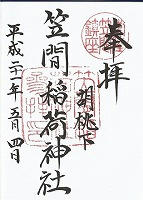 奉拝
胡桃下
笠間稲荷神社
平成二十一年五月四日